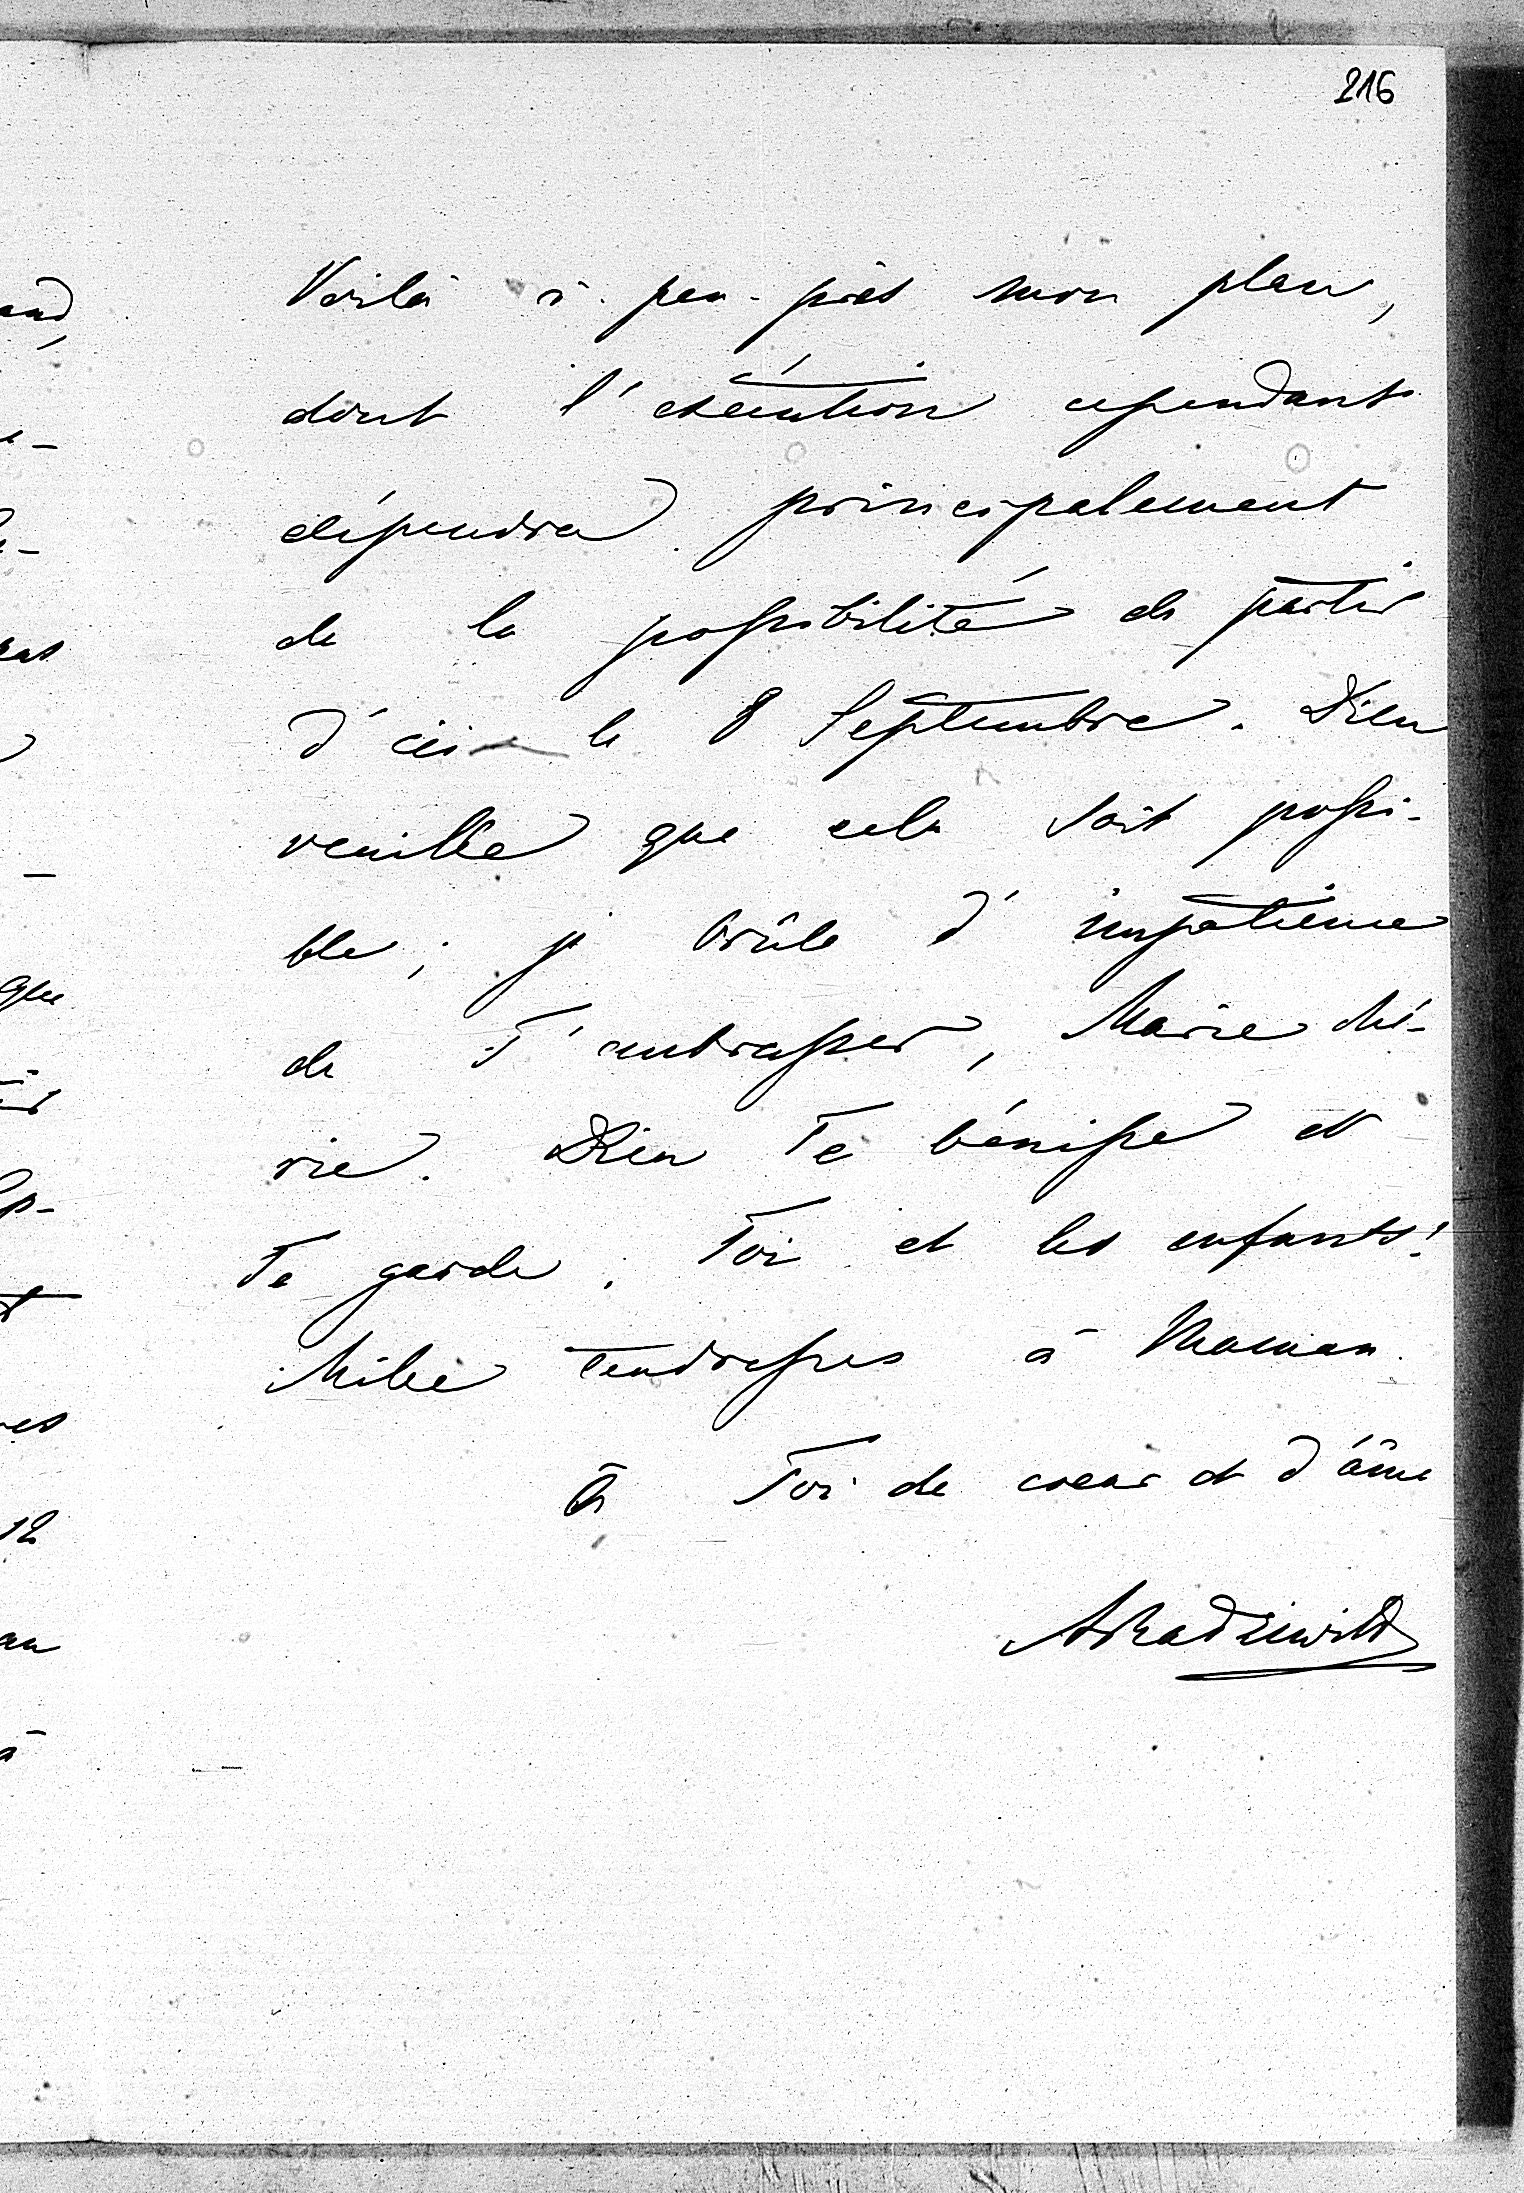 216
Voilà à-peu-près mon plan,
dont l'exécution cependant
dépendra principalement
de la possibilité de partir
d'ici le 8 Septembre. Dieu
veuille que cela soit possi-
ble; je brûle d'impatience
de T'embrasser, Marie ché-
rie. Dieu Te bénisse et
Te garde, Toi et les enfants!
Mille tendresses à Maman.
à Toi de coeur et d'âme
ARadziwill